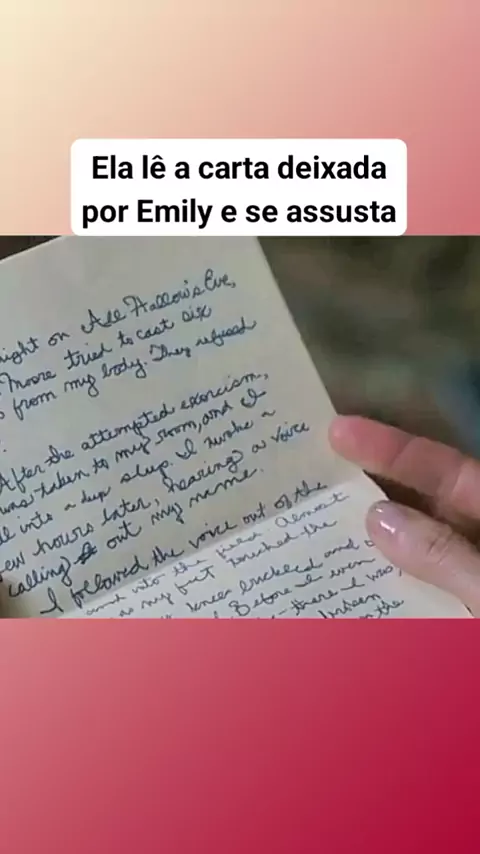 Ela lê a carta deixada
por Emily e se assusta
on All Hallow's Eve,
Moore tried to cast six
from my body. They refused
After the attempted exorcism,
taken to my room, and I
into a deep sleep. I awoke a
few hours later, hearing a voice
calling out my name.
I followed the voice out of the
and into the field. Almost
as my feet touched the
knees buckled and
Before I even
there I was,
the